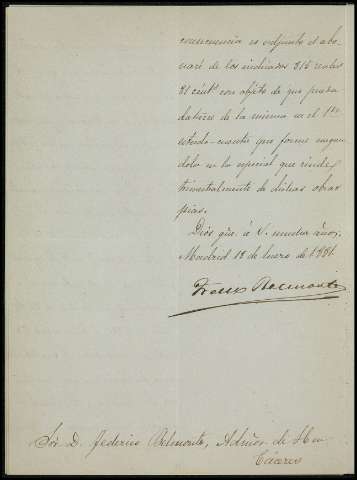 consecuencia es adjunto el abo-
naré de los indicados 315 reales
81 centˢ con objeto de que pueda
datirse de la misma en el 1ᵉʳ
estado-cuenta que forme
dolo en la especial que rinde
trimestralmente de dichas obras
pias.
Dios gũe. á V. muchos años,
Madrid 18 de Enero de 1881.
Belmonte
Sor. D. Federico Belmonte, Admõr. de
Cáceres